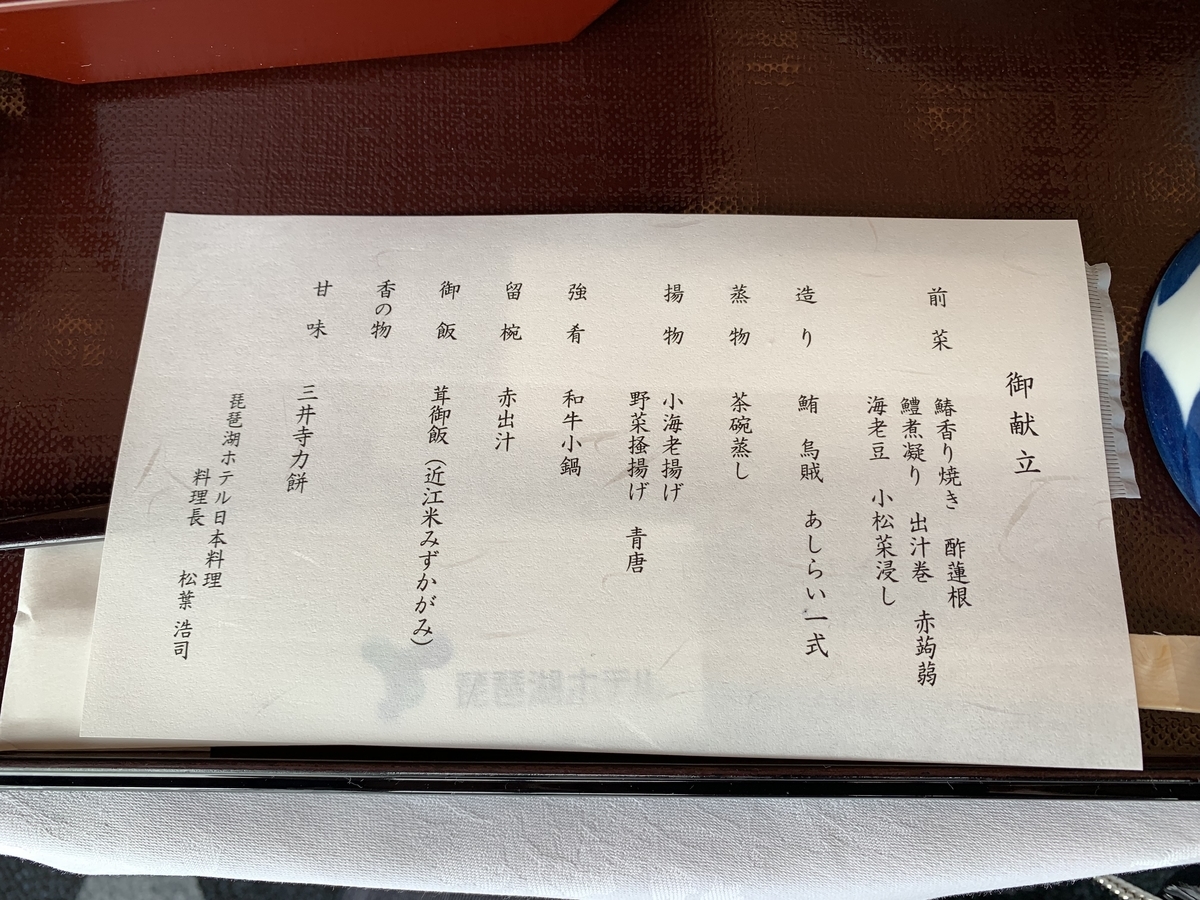 御献立
前菜 鰆香り焼き 酢蓮根
鱧煮凝り 出汁巻 赤蒟蒻
海老豆 小松菜浸し
造り 鮪 烏賊 あしらい一式
蒸物 茶碗蒸し
揚物 小海老揚げ
野菜掻揚げ 青唐
強肴 和牛小鍋
留椀 赤出汁
御飯 茸御飯（近江米みずかがみ）
香の物
甘味 三井寺力餅
琵琶湖ホテル日本料理
料理長 松葉 浩司
琵琶湖ホテル